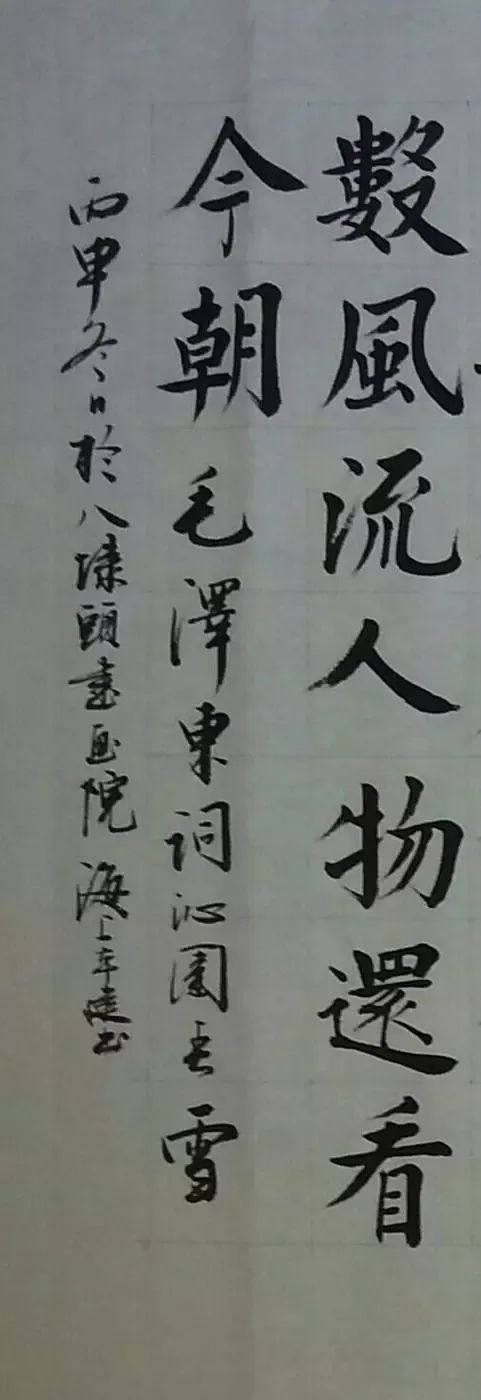 數風流人物還看
今朝 毛澤東詞沁園春雪
丙申冬日於八埭頭書画院 海上年建书